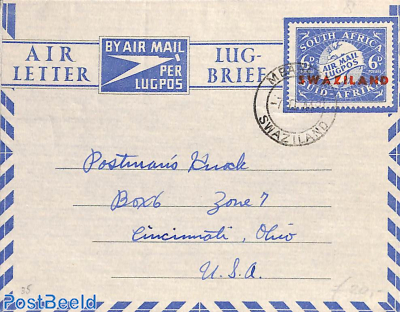 AIR LETTER
BY AIR MAIL
PER LUGPOS
LUG-BRIEF
SOUTH AFRICA
6D 6D
AIR MAIL
LUGPOS
SWAZILAND
SUID-AFRIKA
SWAZILAND
Postman's Knock
Box 6 Zone 7
Cincinnati, Ohio
U.S.A.
35
PostBeeld